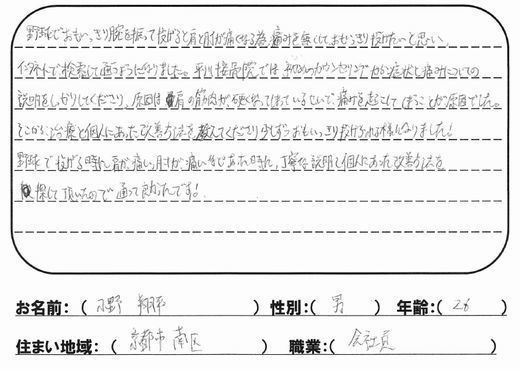 野球でおもいっきり腕を振って投げると肩と肘が痛くなる為、痛みを無くしておもいっきり投げたいと思い、
インターネットで検索して通うようになりました。平川接骨院では初回のカウンセリングから症状と痛みについての
説明をしっかりしてくださり、原因は肩の筋肉が硬くなってしまっているせいで痛みを起こしてしまうことが原因でした。
そこから治療と個人にあった改善方法を教えてくださり少しずつおもいっきり投げられる様になりました!
野球で投げる時に肩が痛い、肘が痛い等であった時に、丁寧な説明と個人にあった改善方法を
探して頂いたので通って良かったです!
お名前:( 小野 翔平 ) 性別:( 男 ) 年齢:( 26 )
住まい地域:( 京都市南区 ) 職業:( 会社員 )